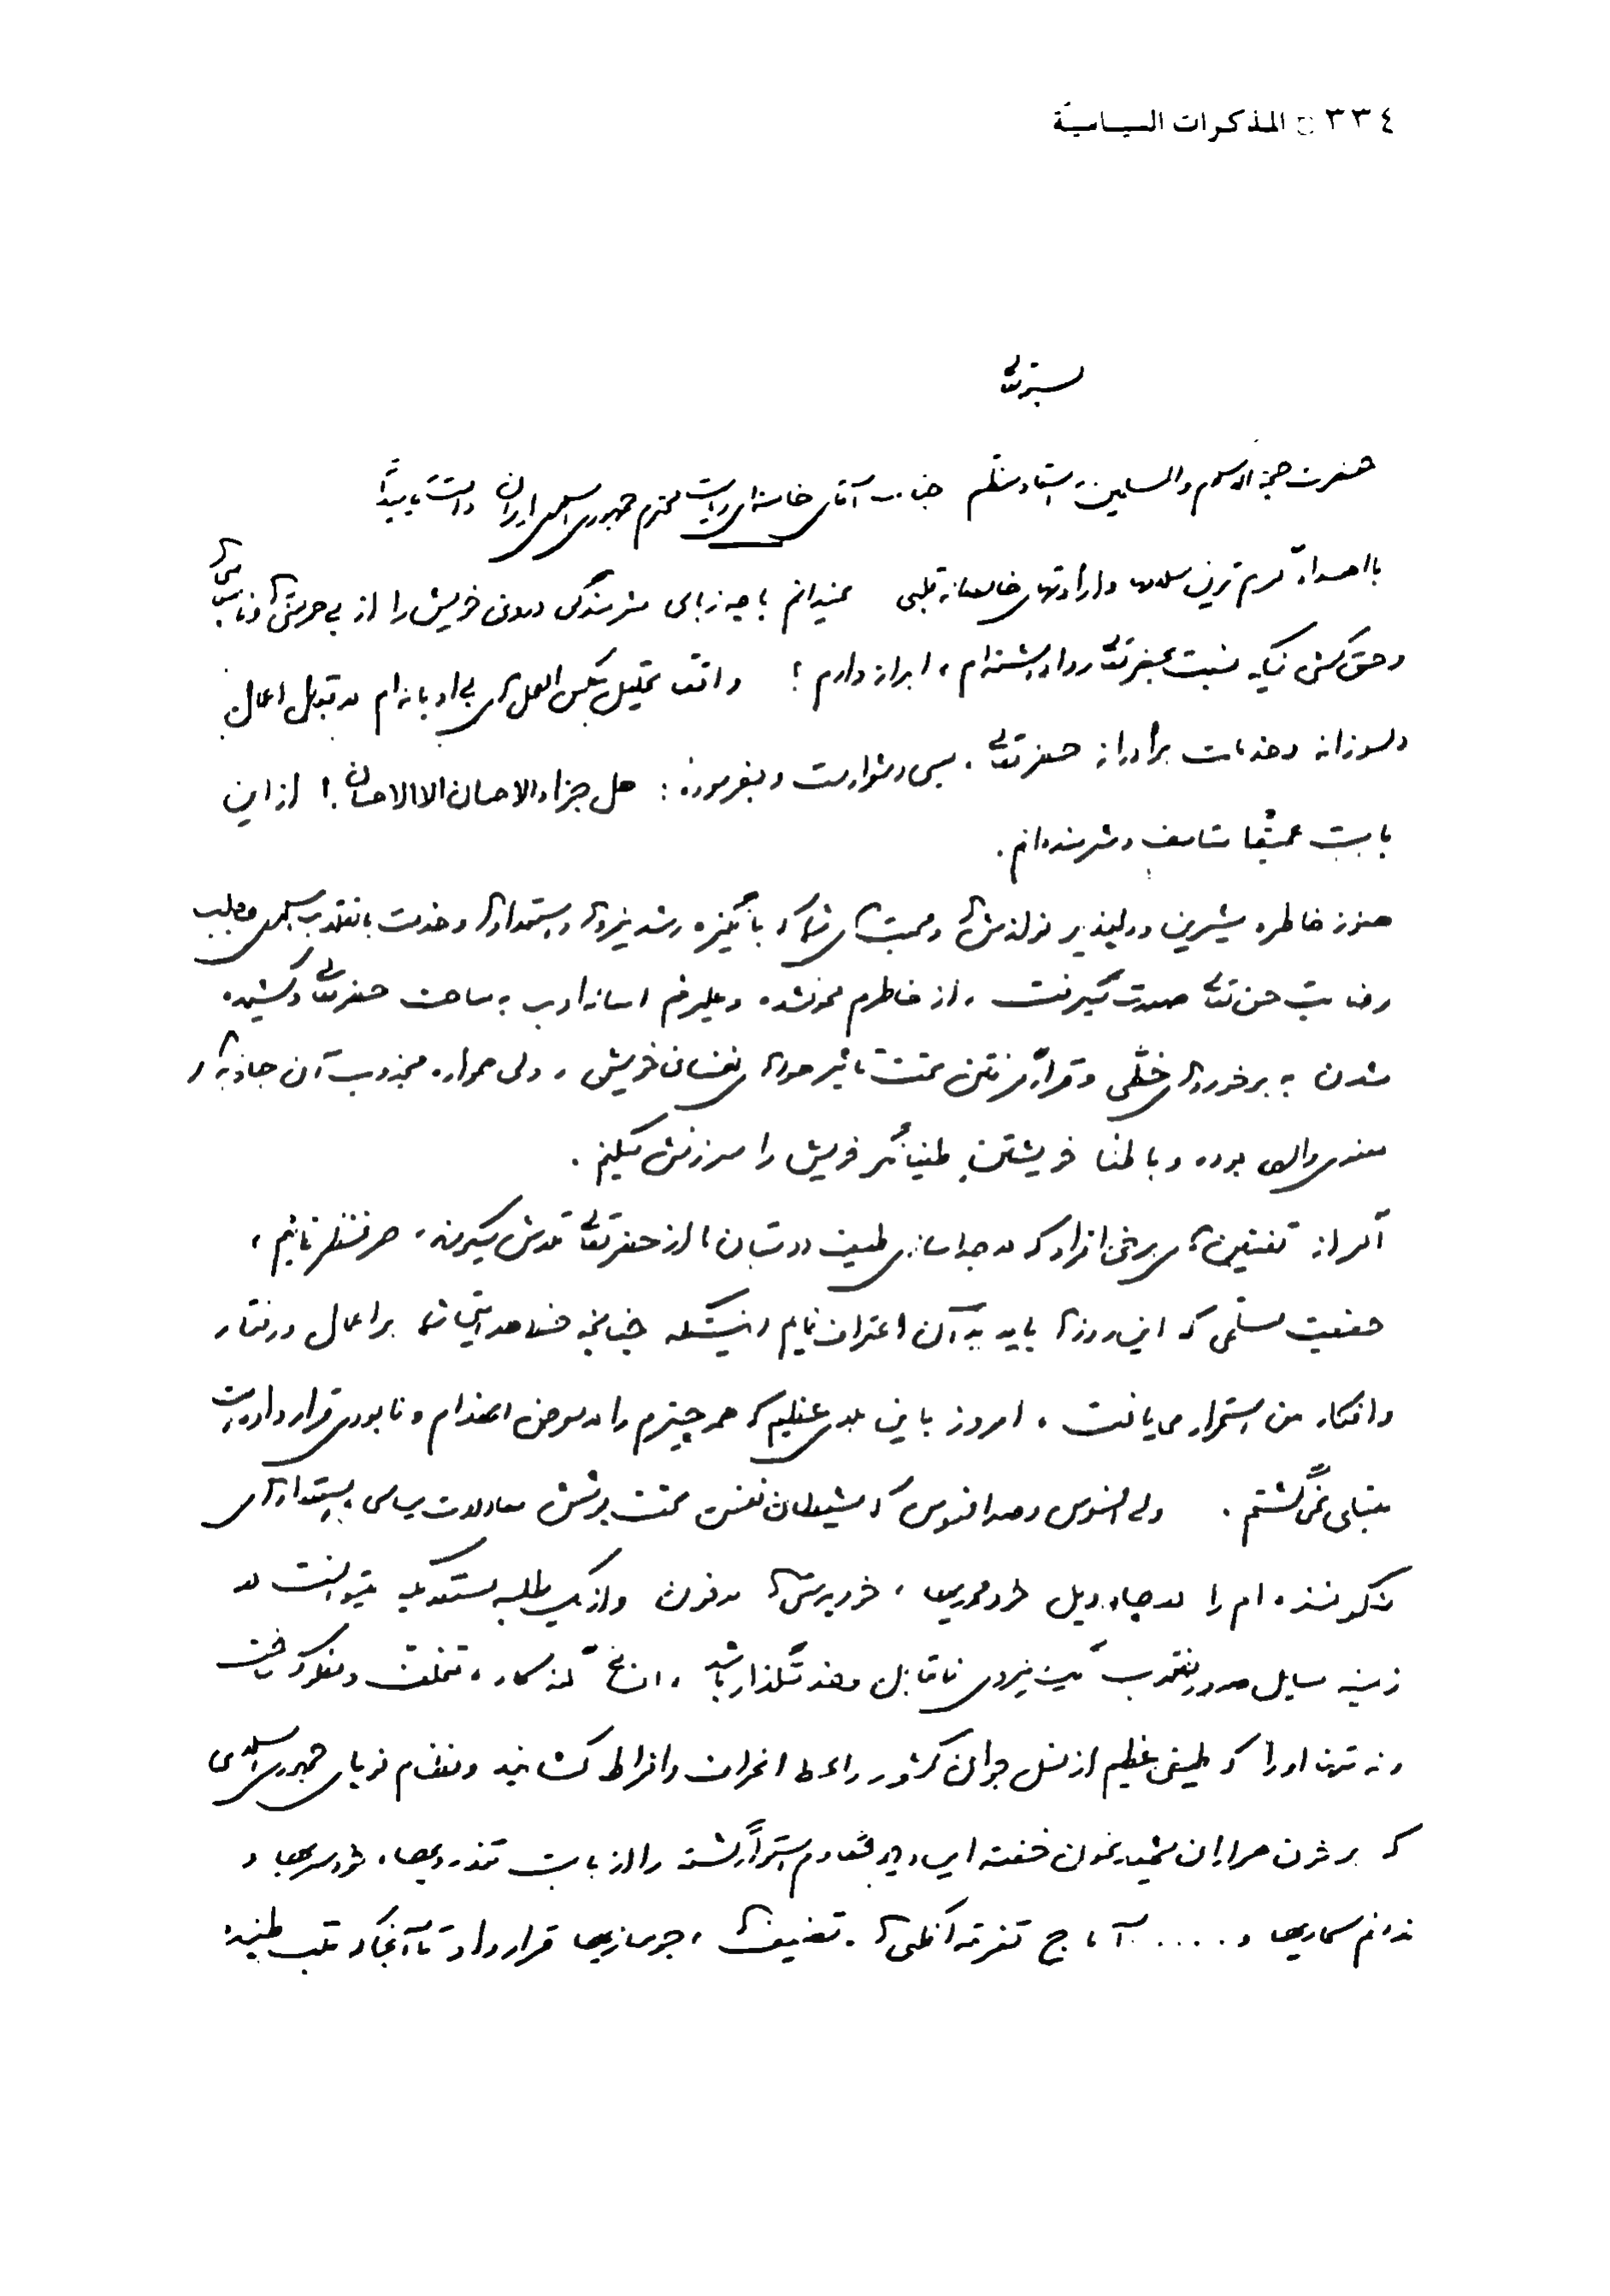 ٣٣٤ □ المذكرات السياسيّة
بسمه تعالی
حضرت حجةالاسلام والمسلمین، استاد معظم جناب آقای خامنه‌ای ریاست محترم جمهوری اسلامی ایران دامت تاییداته
با اهداء گرم ترین سلامها و ارادتهای خالصانه قلبی نمیدانم با چه زبانی شرمندگی درونی خویش را از بی حرمتی‌ها و
و حق کشی نیکه نسبت بحضرتعالی روا داشته‌ام، ابراز دارم؟ و اقعا تحلیل عکس العمل‌های بی ادبانه‌ام در قبال اعمال
دلسوزانه و خدمات برادرانه حضرتعالی، بسی دشوار است و بفرموده: هل جزاء الاحسان الا الاحسان! از این
بابت عمیقا متاسف و شرمنده‌ام.
هنوز خاطره شیرین و دلپذیر نوازش‌ها و محبت‌های شما که با انگیزه رشد نیروها و استعدادها و خدمت بانقلاب اسلامی و جلب
رضایت حق تعالی صورت میگرفت، از خاطرم محو نشده و علیرغم اسائه ادب به ساحت حضرتعالی و کشیده
شدن به برخوردهای خطی و قرار گرفتن تحت تاثیر هواهای نفسانی خویش، ولی همواره مجذوب آن جاذبه‌های
معنوی والای بوده و باطنا خویشتن طغیانگر خویش را سرزنش میکنم.
اگر از تفتین‌های برخی افراد که در جداسازی طیف دوستان ما از حضرتعالی تلاش میکردند، صرفنظر نمائیم،
حقیقت مسلمی که این روزها باید به آن اعتراف نمایم اینستکه چنانچه هدایتهای شما بر اعمال و رفتار
و افکار من استمرار می‌یافت، امروز باین بلای عظیم که همه چیزم را در معرض انهدام و نابودی قرار داده است
مبتلی نمی‌گشتم. ولی افسوس و صد افسوس که شیطان نفس تحت پوشش معادلات سیاسی، استعدادهای
شکوفنده‌ام را در چاه ویل خودمحوریها، خودپرستی‌ها مدفون و از یک طلبه مستعد که میتوانست در
زمینه مسایل صدور انقلاب یک نیروی قابل و خدمتگذار باشد، گنه کار، متخلف و مفلوک ساخت
و نه تنها او را که طیفی عظیم از نسل جوان کشور را به انحراف و افراط کشانید و نظام نوپای جمهوری اسلامی
که بر خون هزاران شهید بخون خفته استقرار گشته را از بابت تندرویها، خودسریها و
ندانم کاریها و ..... آماج تفرقه افکنی‌ها، تضعیف‌ها، جوسازیها قرار داد تا آنجا که قلب